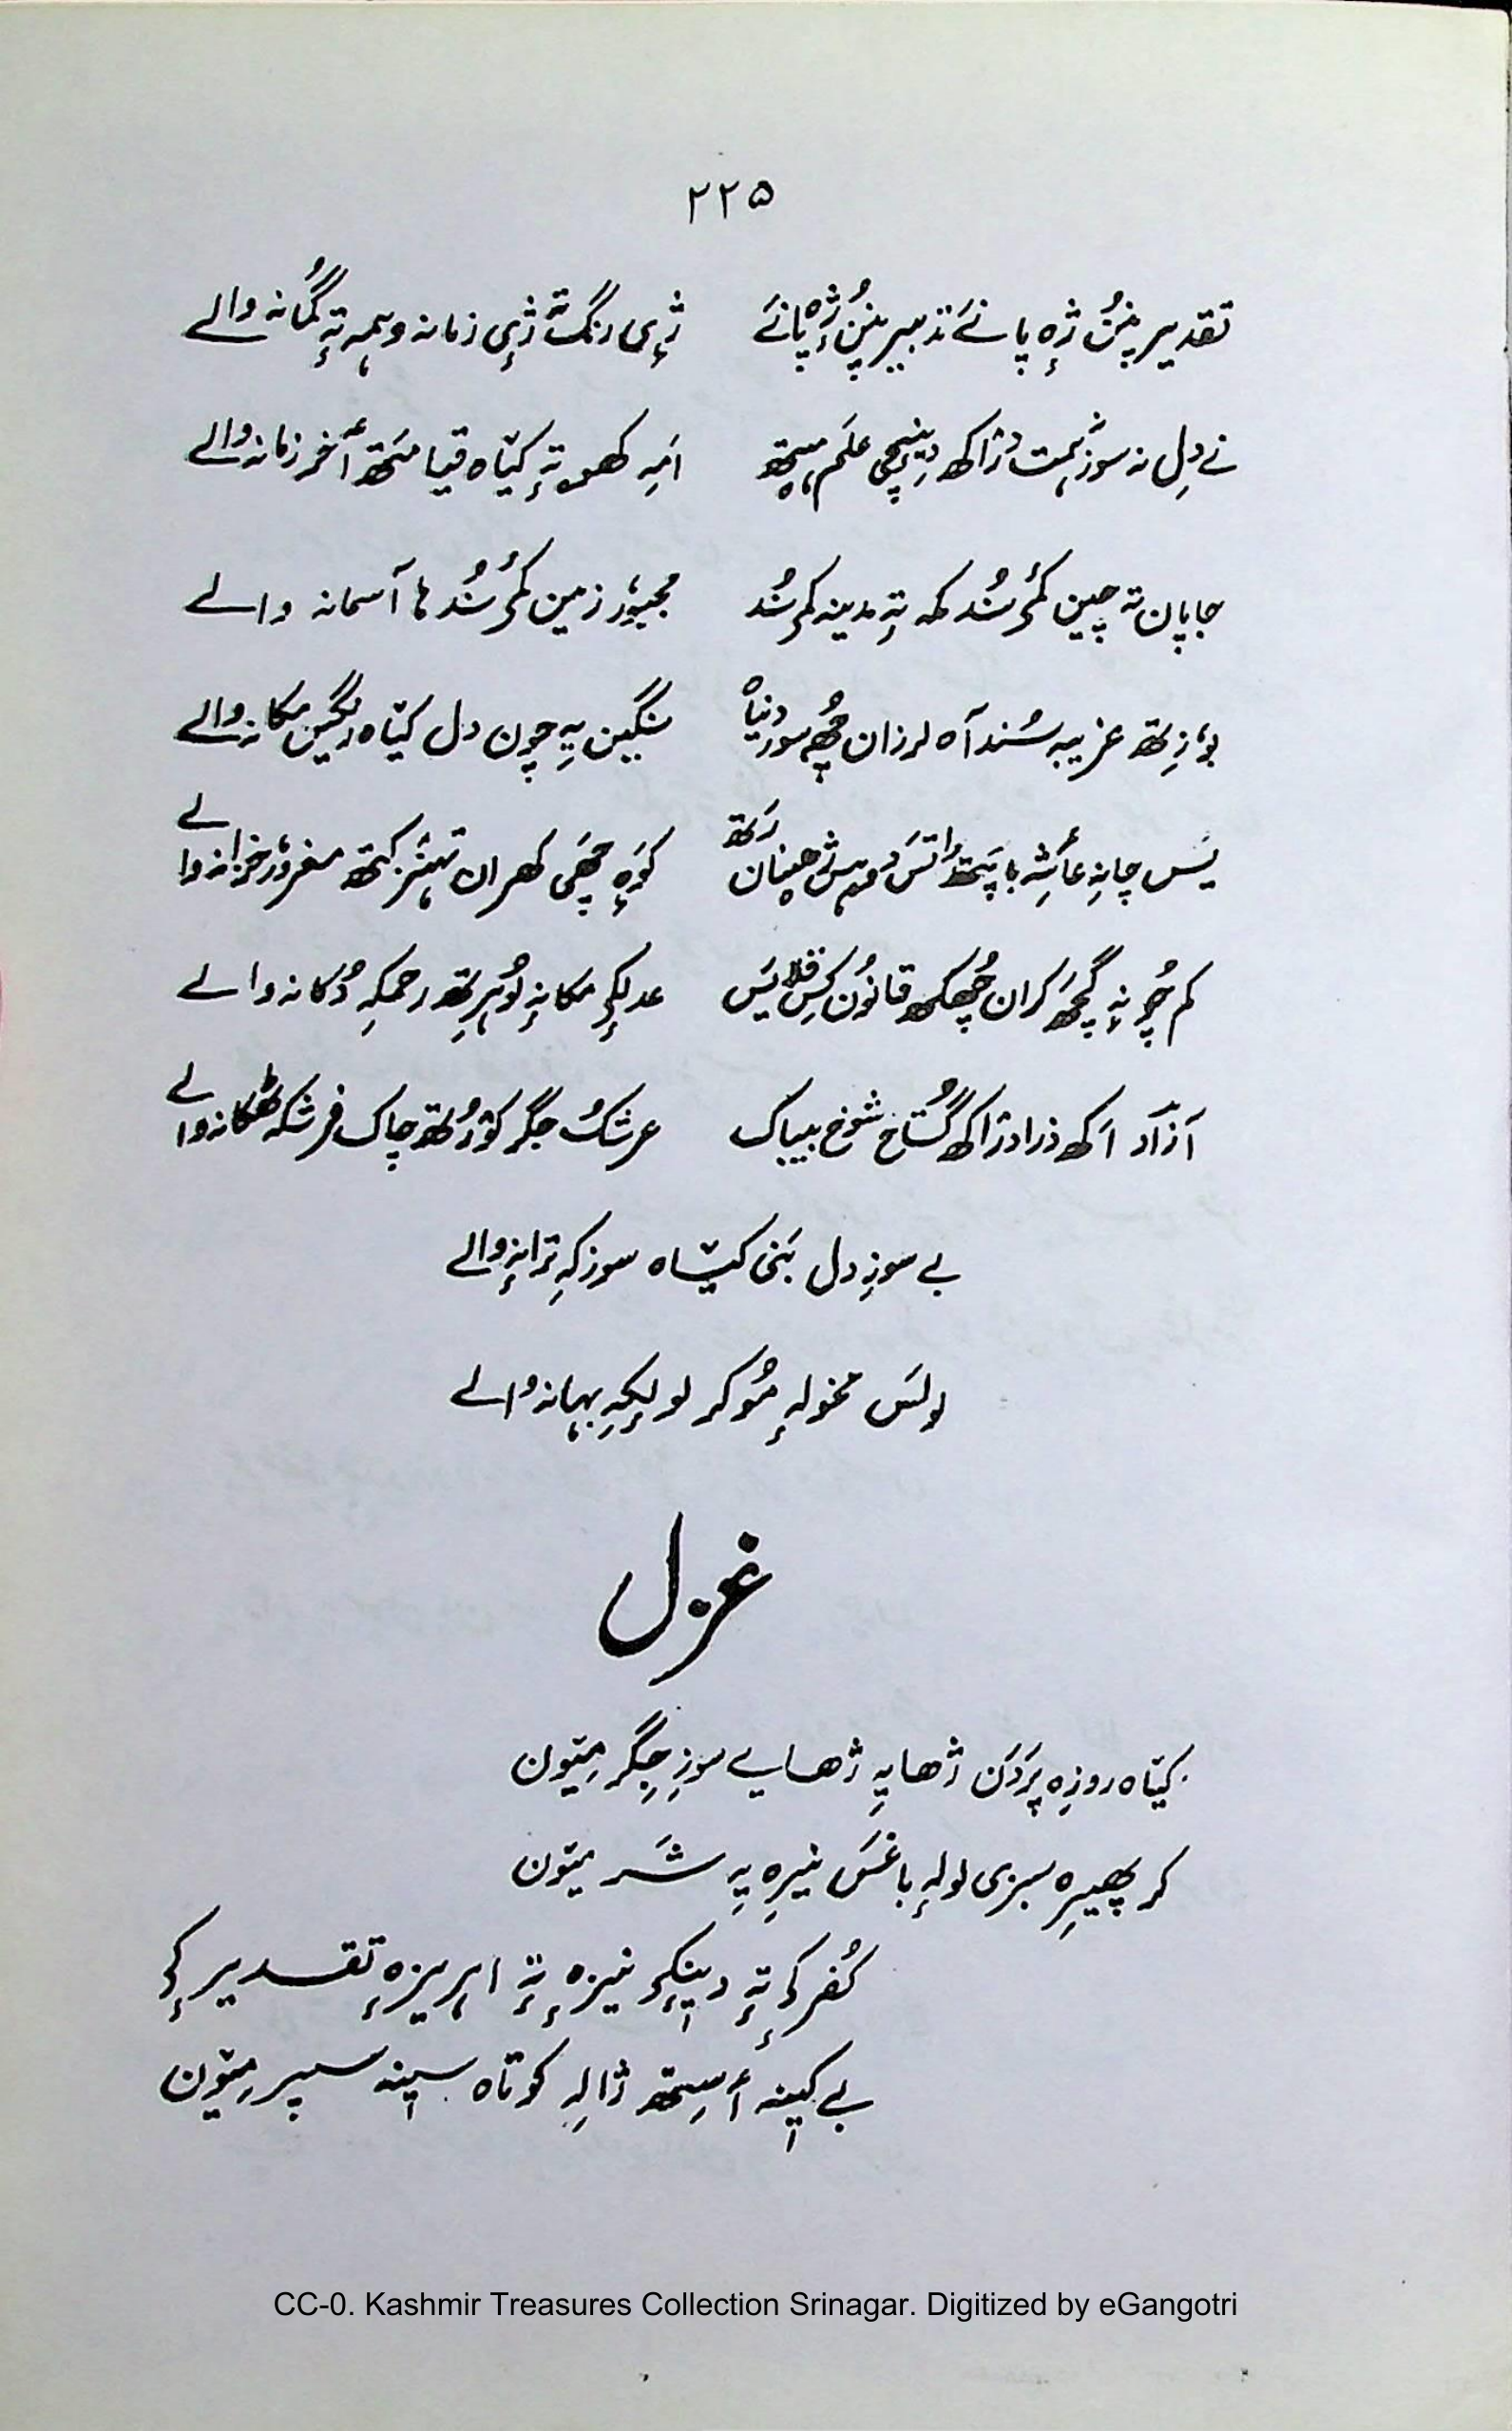 ۲۲۵
تقدیر پنُن ژٕہ پانَے تدبیر پنُن ژٕہ پانَے ژٕی رنگ تہٕ ژٕی زمانہ وہمہ تہٕ گُمانہ والے
نے دِل نہ سوز ہمت دژاکھ دِینٕچی علَم ہیتھ امَہِ کھوتہٕ کیٚاہ قیامتھ آخر زمانہ والے
جاپان تہ چین کٔمۍ سُند مکہ تہٕ مدینہ کمۍ سُند مجبوٗر زمین کٔمۍ سُند ہا آسمانہ والے
بوٗزِتھ غریبہ سُند آہ لرزان چھُ سور دنیاہ سنگین یہِ چون دل کیٚاہ رنگین مکانہ والے
یَس چانہِ عأشہِ باپتھ واتَس دوہس ژھینان رَتھ کوٚہ چھَی کھران تہٕنٛز کتھ مغروٗر خزانہ والے
کم چُر نہٕ گچھ کران چھُکھ قانوٗن کِس قلم یَس عدلکہِ مکانہٕ لوٗبرِتھ رحمکہِ دُکانہ والے
آزاد اَکھ ذرا دژاکھ گُستاخ شوٗخ بیباک عرشُک جگر کوٚرُتھ چاک فرشکہ ٹھکانہ والے
بے سوزِ دل بَنی کیٚاہ سوزکہِ ترانہٕ والے
لولَس مخولہٕ مُو کر لولٕکہِ بہانہ والے
غزل
کیٚاہ روزِہ پرَدَن ژھایہِ ژھایے سوزِ جِگر میٚون
کر پھیرِہ سبزی لولہٕ باغَس نیرِہ یہِ شَر میٚون
کُفرکۍ تہٕ دینٕکۍ نیزہٕ تہٕ ابریزہٕ تقدیر کۍ
بے کیٖنہ أسِتھ ژالہِ کوتاہ سیٖنہ سپر میٚون
CC-0. Kashmir Treasures Collection Srinagar. Digitized by eGangotri